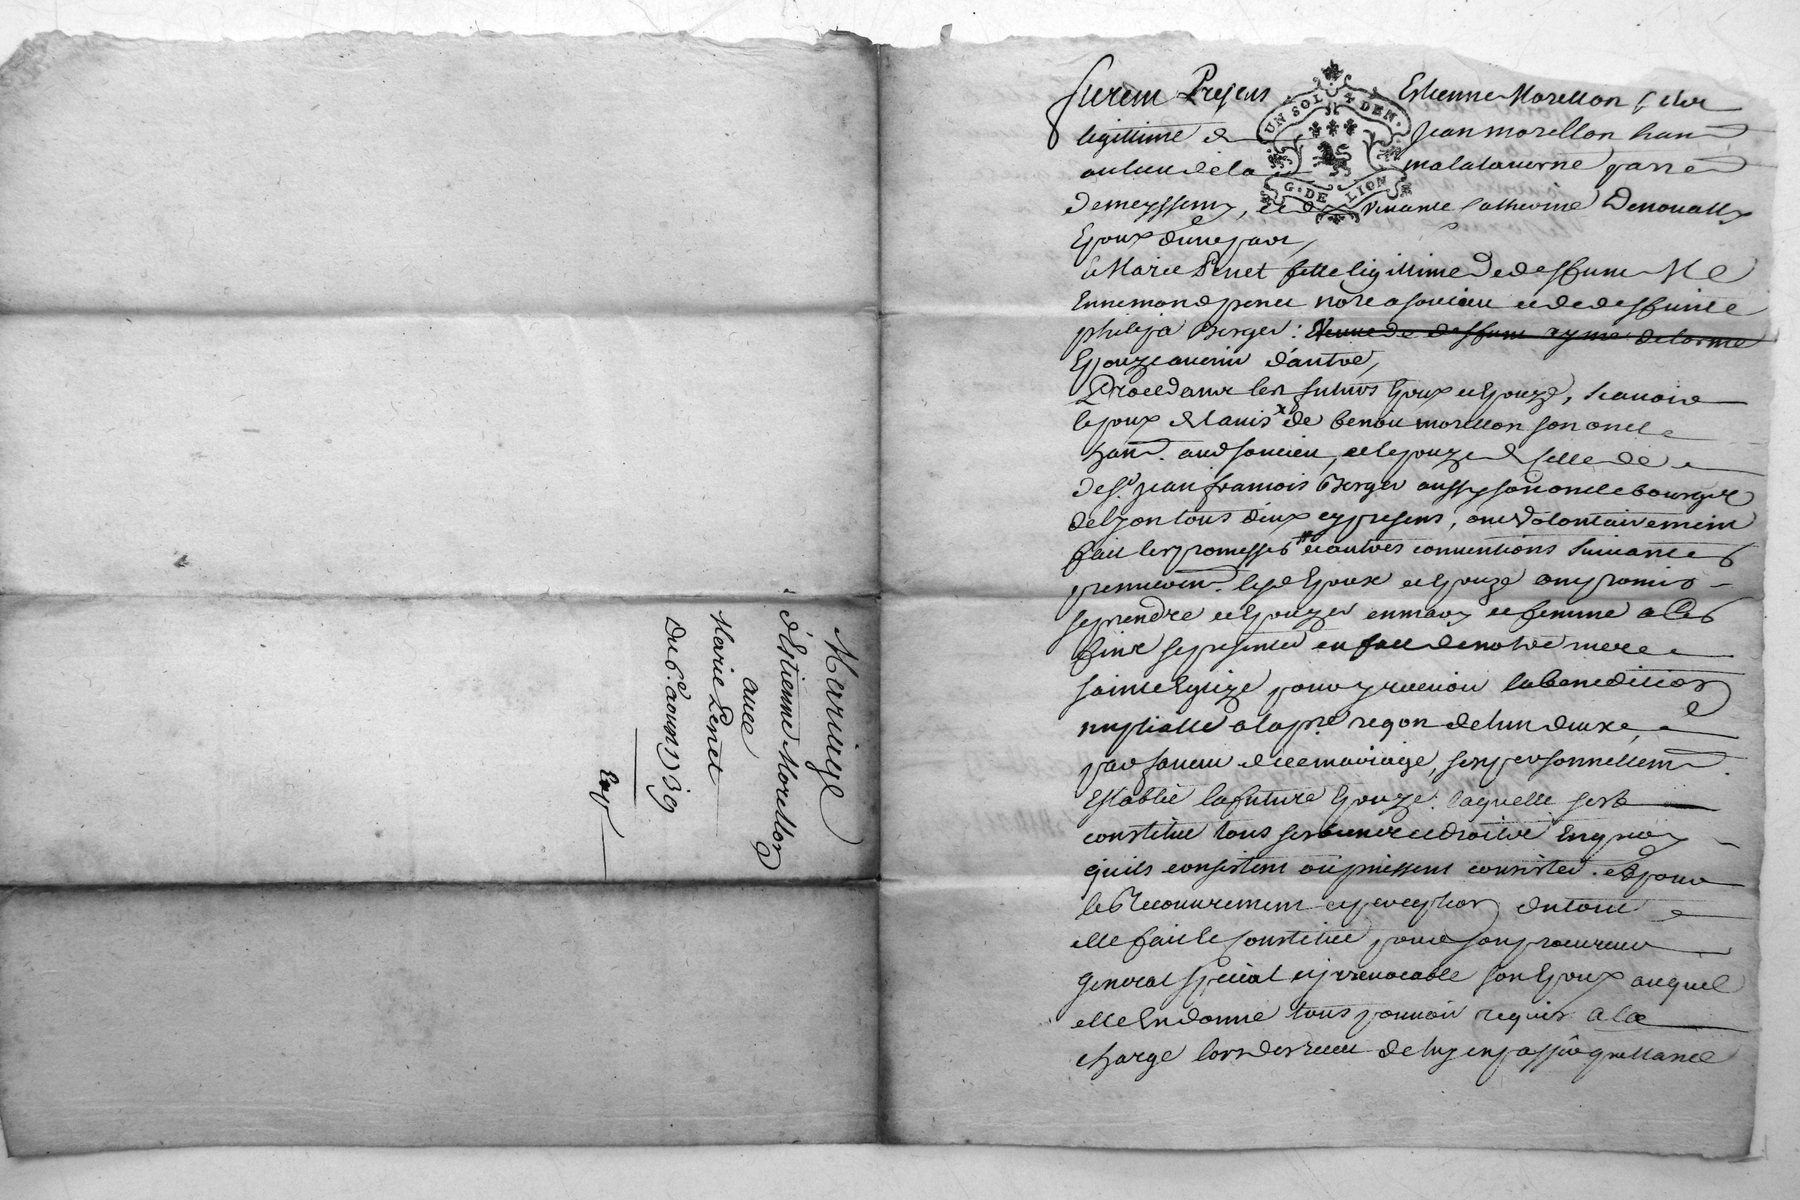 Mariage
d'Estienne Morellon
avec
Marie Penet
Du 6.e aoust 1739
Exp
UN SOL 4 DEN.
G. DE LION
furent Presens Estienne Morellon filz
legittime de Jean morellon hant
au lieu de la malatauerne parre
de meyssem, et de viuante Catherine Denoually
Epoux d'une part,
Et Marie Penet fille legittime de deffunt Me
Ennemond penet nore a soncieu et de deffunte
philipa Berger: Veuue de deffunt ayme delorme
Epouze auenir d'autre,
Procedants les futurs Epoux et Epouze, scauoir
lepoux de lauis de benoit morellon son oncle
hant. aud soncieu, et lepouze de celle de
de sr. jean francois Berger aussy son oncle bourgois
de lyon tous deux cy presens, ont volontairement
fait les promesses et autres conuentions suiuantes
premierem. lesd Epoux et Epouze ont promis
se prendre et Epouzer en mary et femme a ces
fins se presenter en face de notre mere
sainte Eglize pour y receuoir la benediction
nuptialle a la pre. reqon de lun deux,
par faueur de ce mariage, sest personnellemt.
Establie la future Epouze. laquelle sest
constitue tous ses biens et droits En quoy
quils consistent ou puissent consister. et pour
le recouurement et perception du tout
elle fait et constitue pour son procureur
general special et irreuocable son Epoux auquel
elle En donne tous pouuoir requis a la
charge lors des receu de luy en passer quittance